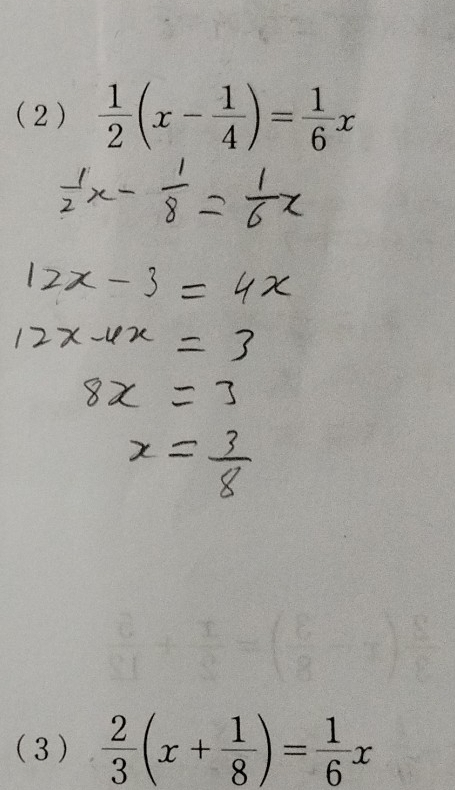 (2) 1/2(x − 1/4) = 1/6 x
1/2 x − 1/8 = 1/6 x
12x − 3 = 4x
12x − 4x = 3
8x = 3
x = 3/8
(3) 2/3(x + 1/8) = 1/6 x